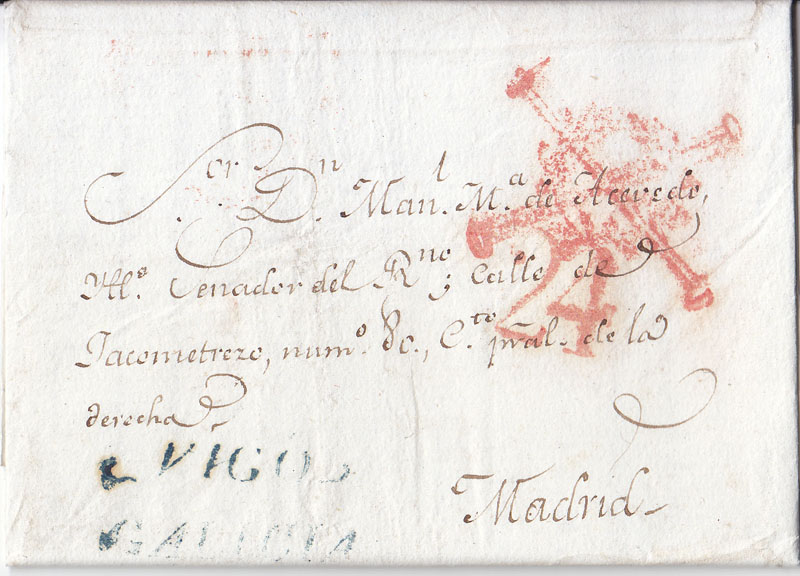 Sor. Dn. Manl. Ma. de Acevedo,
Yllo. Cenador del Rno; Calle de
Jacometrezo, numo. 80., Cto. pral. de la
derecha
Madrid
24
VIGO
GALICIA